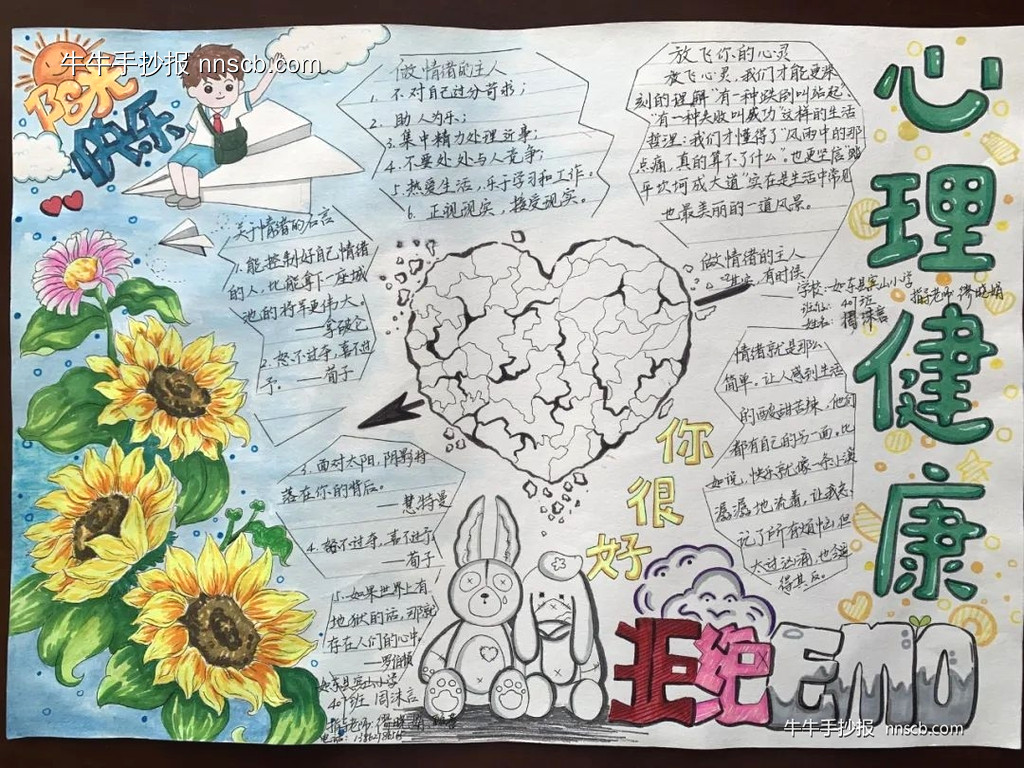 牛牛手抄报 nnscb.com
阳光
快乐
心理健康
做情绪的主人
1. 不对自己过分苛求;
2. 助人为乐;
3. 集中精力处理近事;
4. 不要处处与人竞争;
5. 热爱生活,乐于学习和工作。
6. 正视现实,接受现实。
放飞你的心灵
放飞心灵,我们才能更深
刻的理解"有一种跌倒叫站起、
"有一种失败叫成功"这样的生活
哲理:我们才懂得了"风雨中的那
点痛,真的算不了什么"。也更坚信"踏
平坎坷成大道"实在是生活中常见
也最美丽的一道风景。
关于情绪的名言
1. 能控制好自己情绪
的人,比能拿下一座城
池的将军更伟大。
——拿破仑
2. 怒不过夺,喜不过
予。 ——荀子
3. 面对太阳,阴影将
落在你的背后。
——惠特曼
4. 怒不过夺,喜不过予
——荀子
5. 如果世界上有
地狱的话,那就
存在人们的心中。
如东县宾山小学
401班 周沫言
指导老师:
做情绪的主人
其实,有时候
学校:如东县宾山小学
班级: 401班
指导老师
姓名: 周沫言
情绪就是那么
简单。让人感到生活
的酸甜苦辣,他们
都有自己的另一面。比
如说,快乐就像一条小溪
潺潺地流着,让我忘
记了所有烦恼,但
得其反。
你
很
好
拒绝EMO
牛牛手抄报 nnscb.com